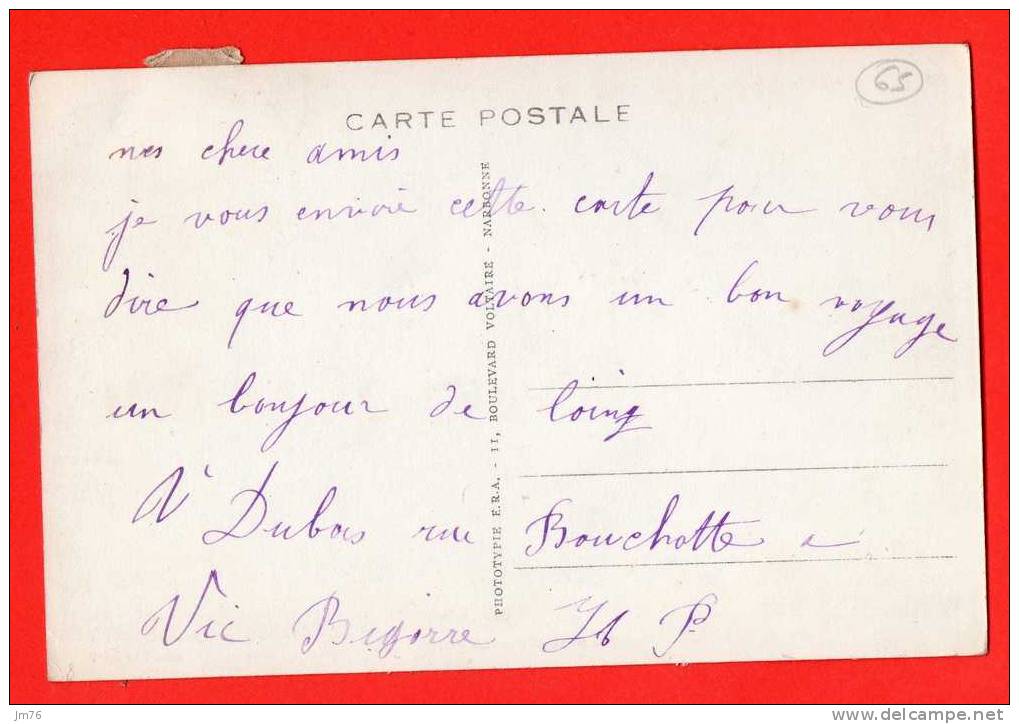 65
CARTE POSTALE
mes chere amis
je vous envoie cette carte pour vous
dire que nous avons un bon voyage
un bonjour de loing
V Dubois rue Bouchotte a
Vic Bigorre Hte P.
PHOTOTYPIE E.R.A. - 11, BOULEVARD VOLTAIRE - NARBONNE
8
jm76
www.delcampe.net